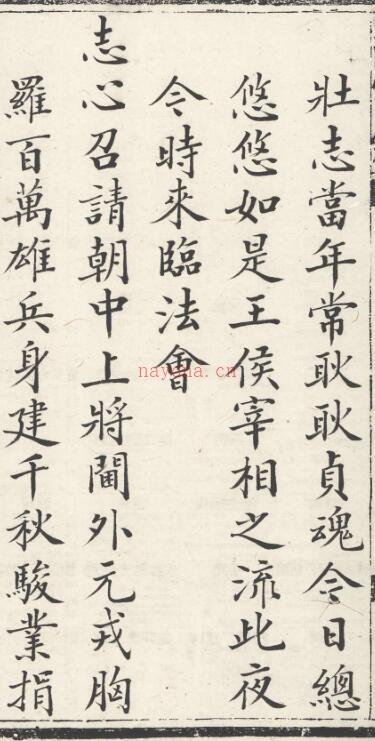 壯志當年常耿耿貞魂今日總
悠悠如是王侯宰相之流此夜
今時來臨法會
志心召請朝中上將閫外元戎胸
羅百萬雄兵身建千秋駿業捐
nayona.cn